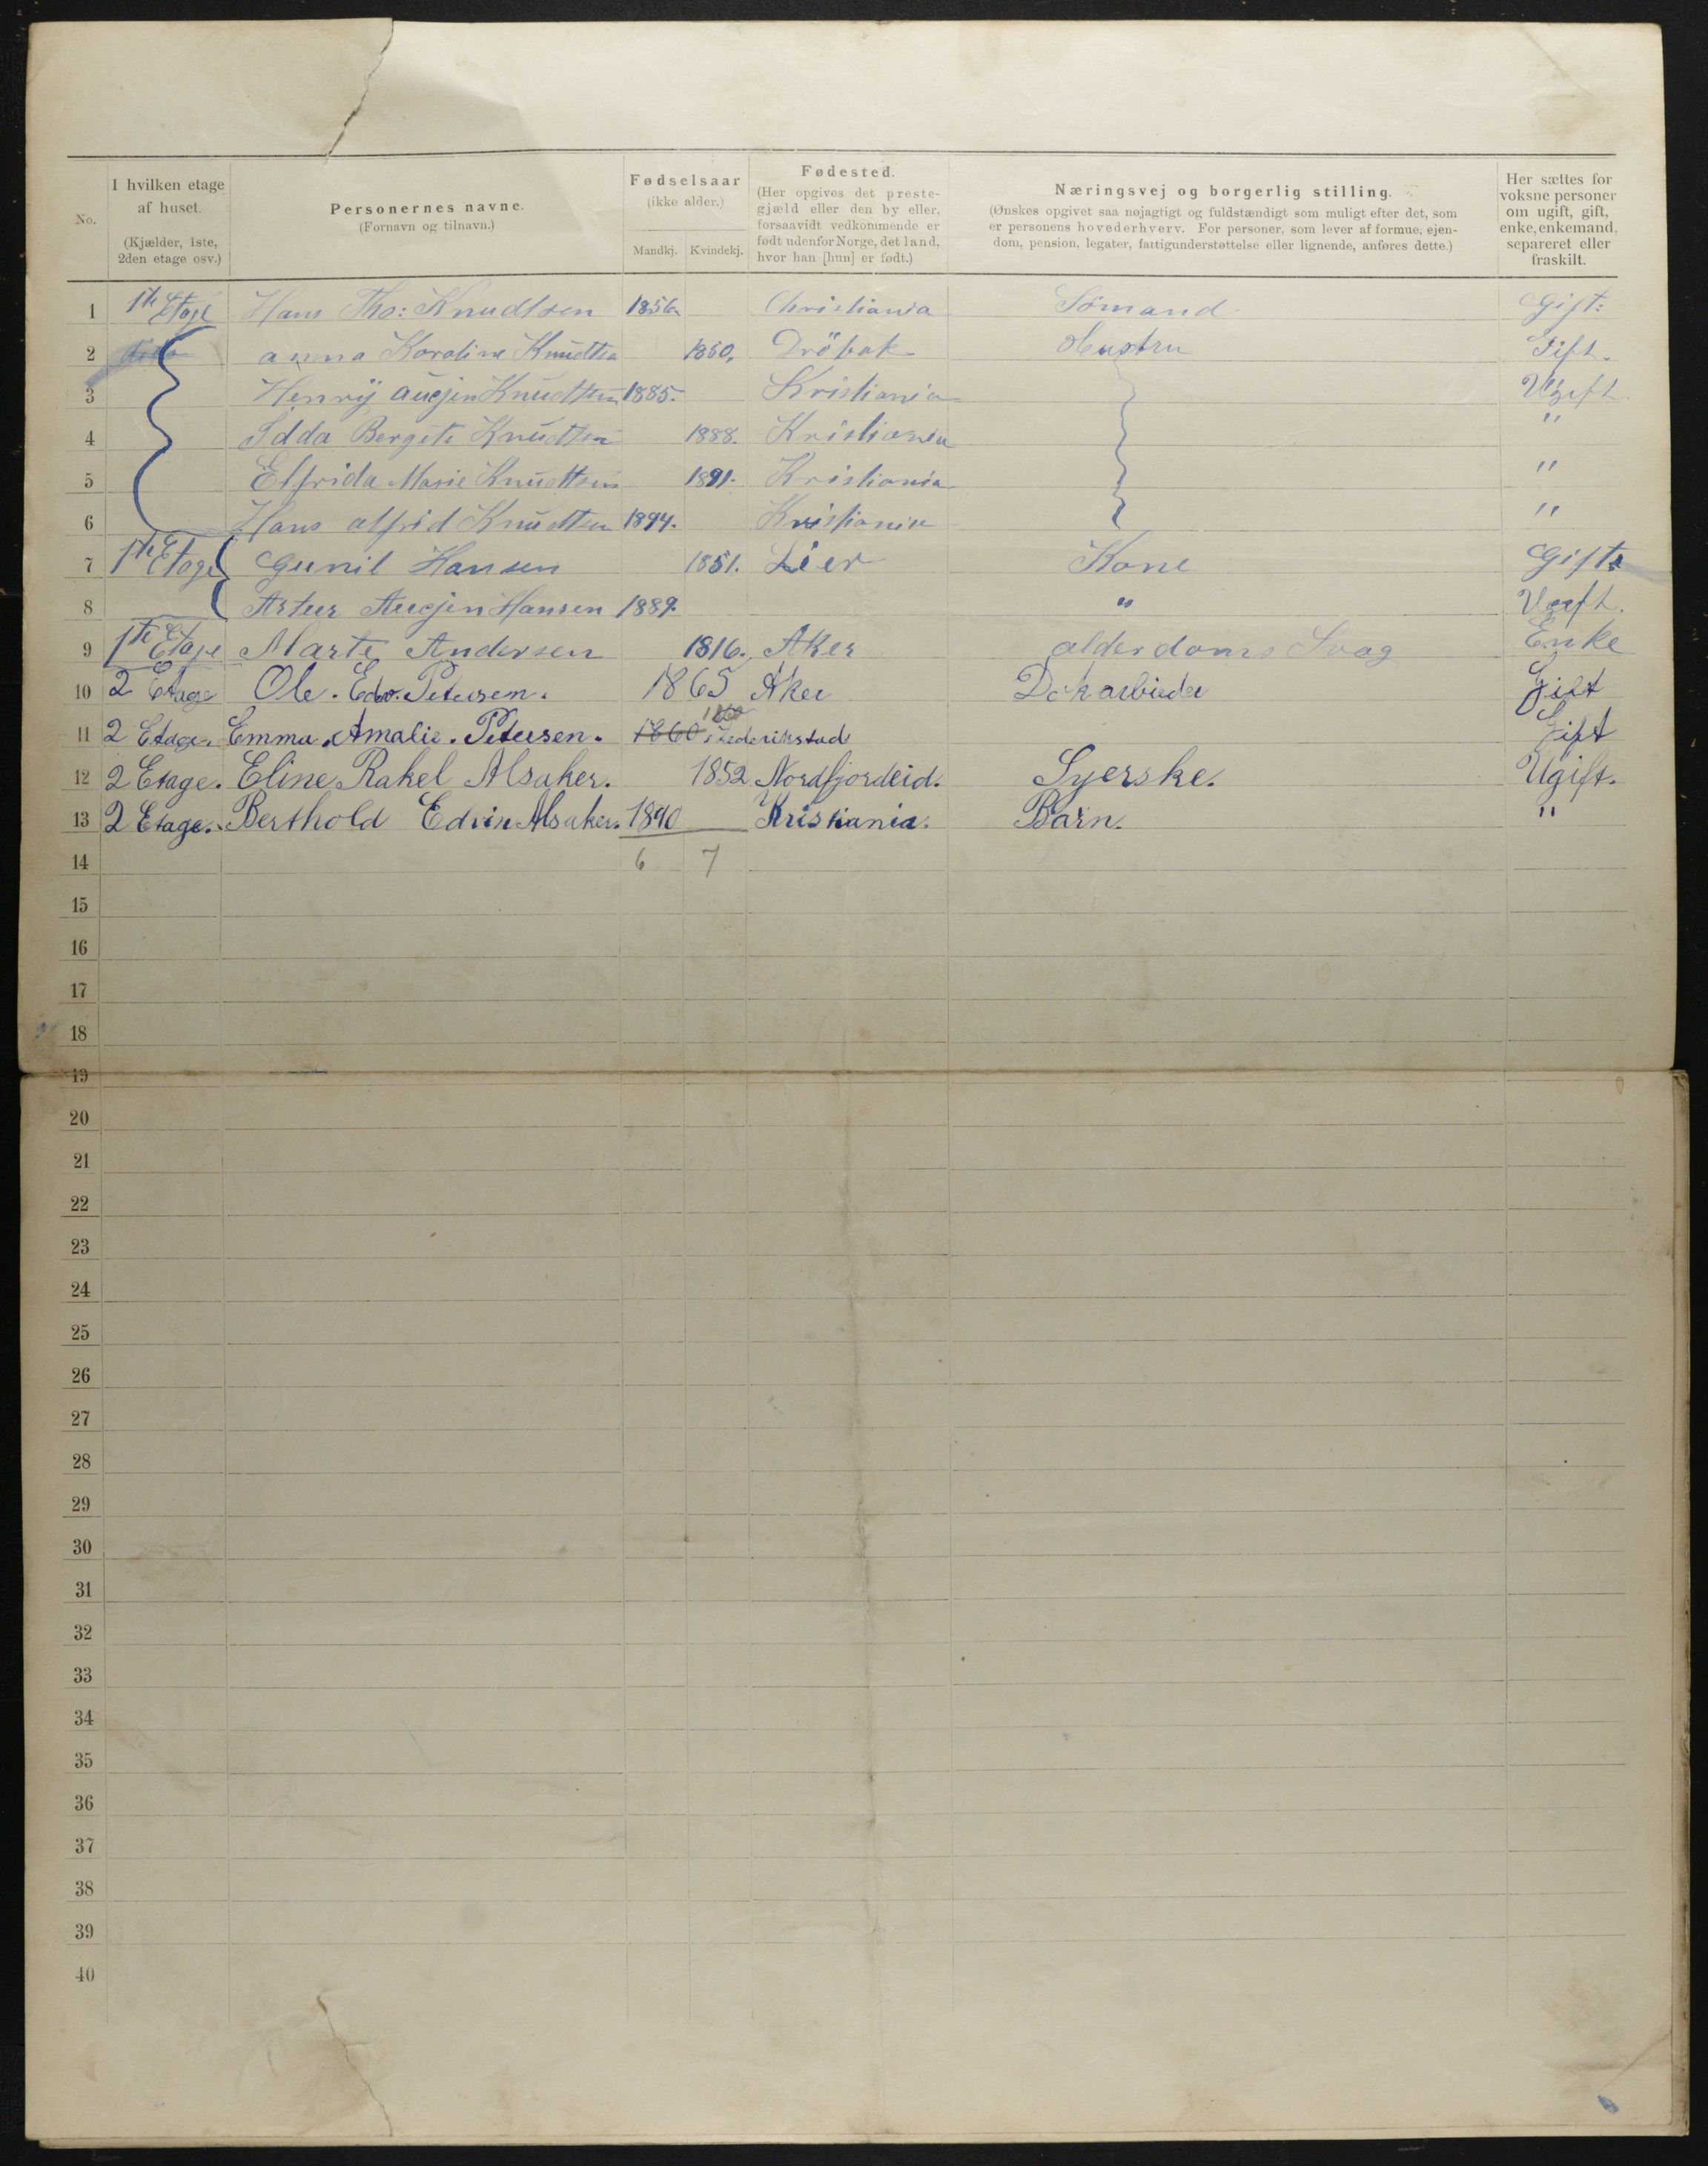 No.
I hvilken etage af huset. (Kjælder, 1ste, 2den etage osv.)
Personernes navne. (Fornavn og tilnavn.)
Fødselsaar (ikke alder.) Mandkj. Kvindekj.
Fødested. (Her opgives det prestegjæld eller den by eller, forsaavidt vedkommende er født udenfor Norge, det land, hvor han [hun] er født.)
Næringsvej og borgerlig stilling. (Ønskes opgivet saa nøjagtigt og fuldstændigt som muligt efter det, som er personens hovederhverv. For personer, som lever af formue, ejendom, pension, legater, fattigunderstøttelse eller lignende, anføres dette.)
Her sættes for voksne personer om ugift, gift, enke, enkemand, separeret eller fraskilt.
1 1te Etage Hans Tho: Knudtsen 1856. Christiania Sömand Gift:
2 anna Karoline Knudtsen 1860. Dröbak Hustru Gift.
3 Henrÿ Augjen Knudtsen 1885. Kristiania Ugift
4 Idda Bergete Knudtsen 1888. Kristiania "
5 Elfrida Marie Knudtsen 1891. Kristiania "
6 Hans alfrid Knudtsen 1894. Kristiania "
7 1te Etage Gunil Hansen 1851. Lier Kone Gift
8 Artur Augjen Hansen 1889. " Ugift.
9 1te Etage Marte Andersen 1816. Aker alderdoms Svag Enke
10 2 Etage Ole. Edv. Petersen. 1865 Aker Dokarbieder Gift
11 2 Etage. Emma. Amalie. Petersen. 1860 1860 Frederikstad Gift
12 2 Etage. Eline Rakel Alsaker. 1852 Nordfjordeid. Syerske. Ugift.
13 2 Etage. Berthold Edvin Alsaker. 1890 Kristiania. Barn. "
14 6 7
15
16
17
18
19
20
21
22
23
24
25
26
27
28
29
30
31
32
33
34
35
36
37
38
39
40